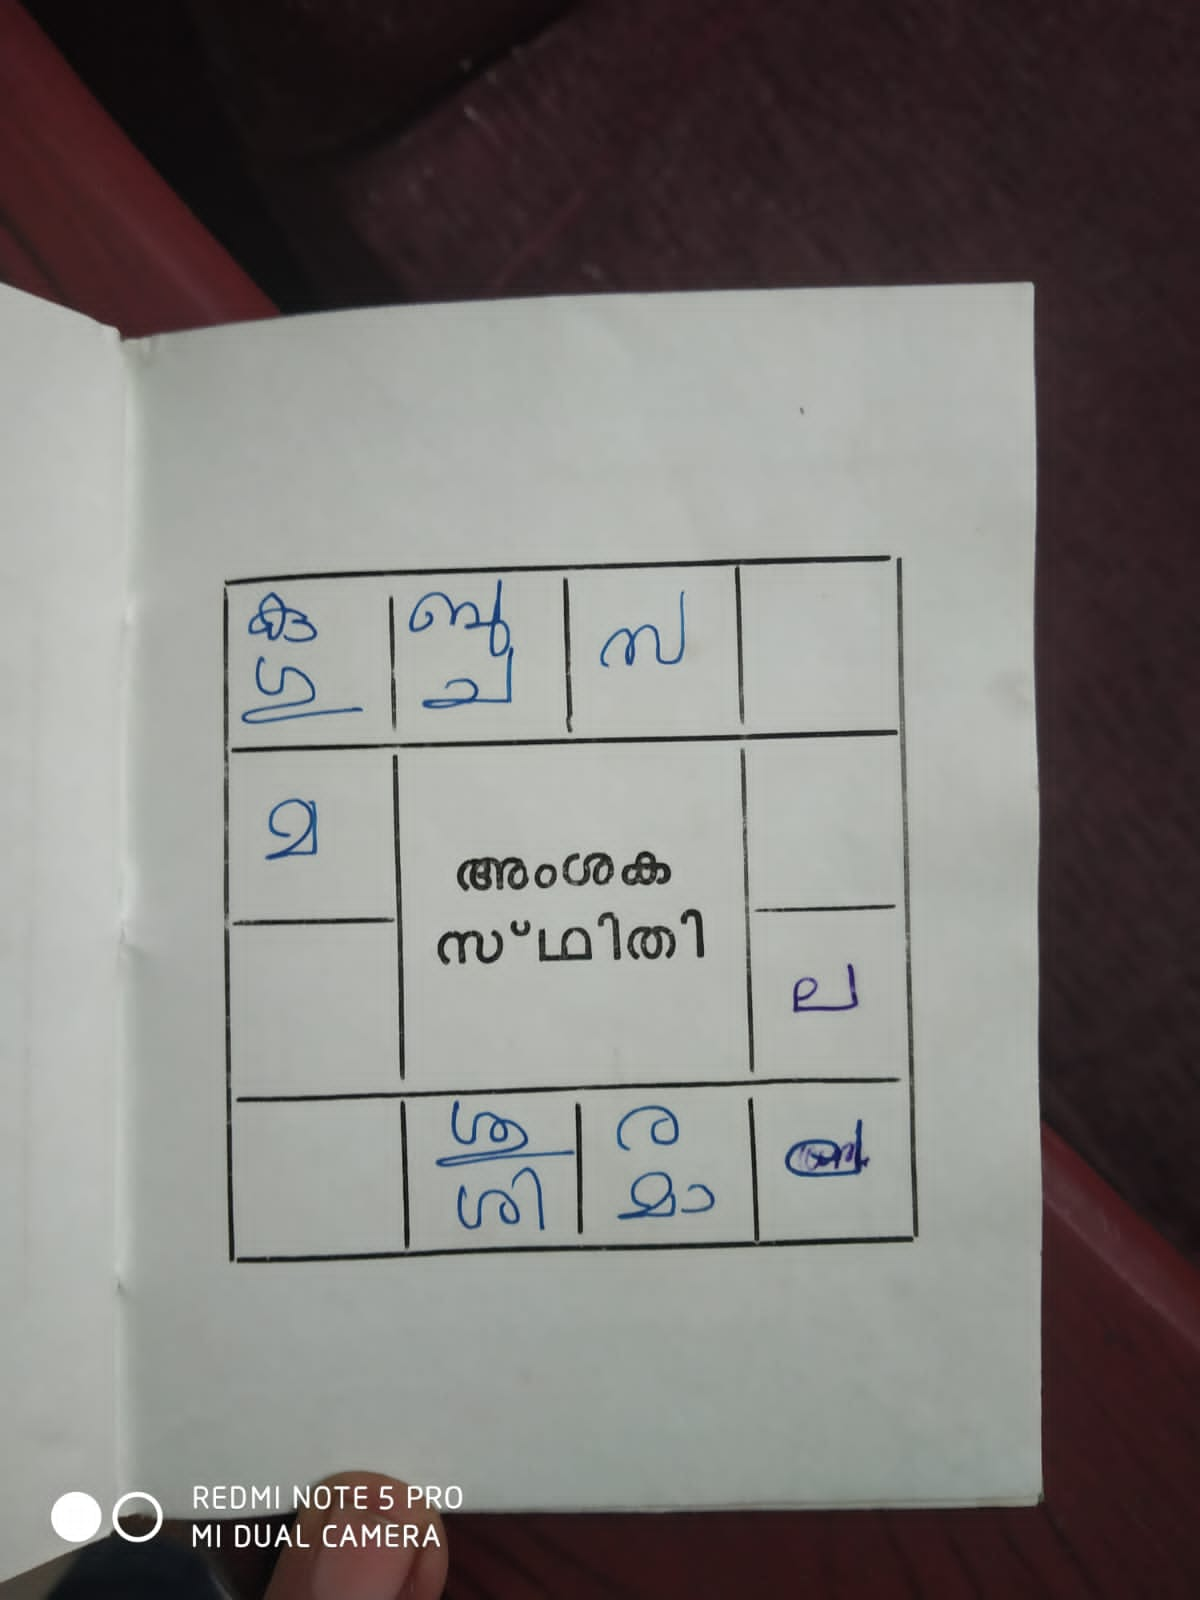 കു
ഗു
ബു
ച
സ
മ
അംശക
സ്ഥിതി
ല
ശു
ശി
ര
മാ
REDMI NOTE 5 PRO
MI DUAL CAMERA